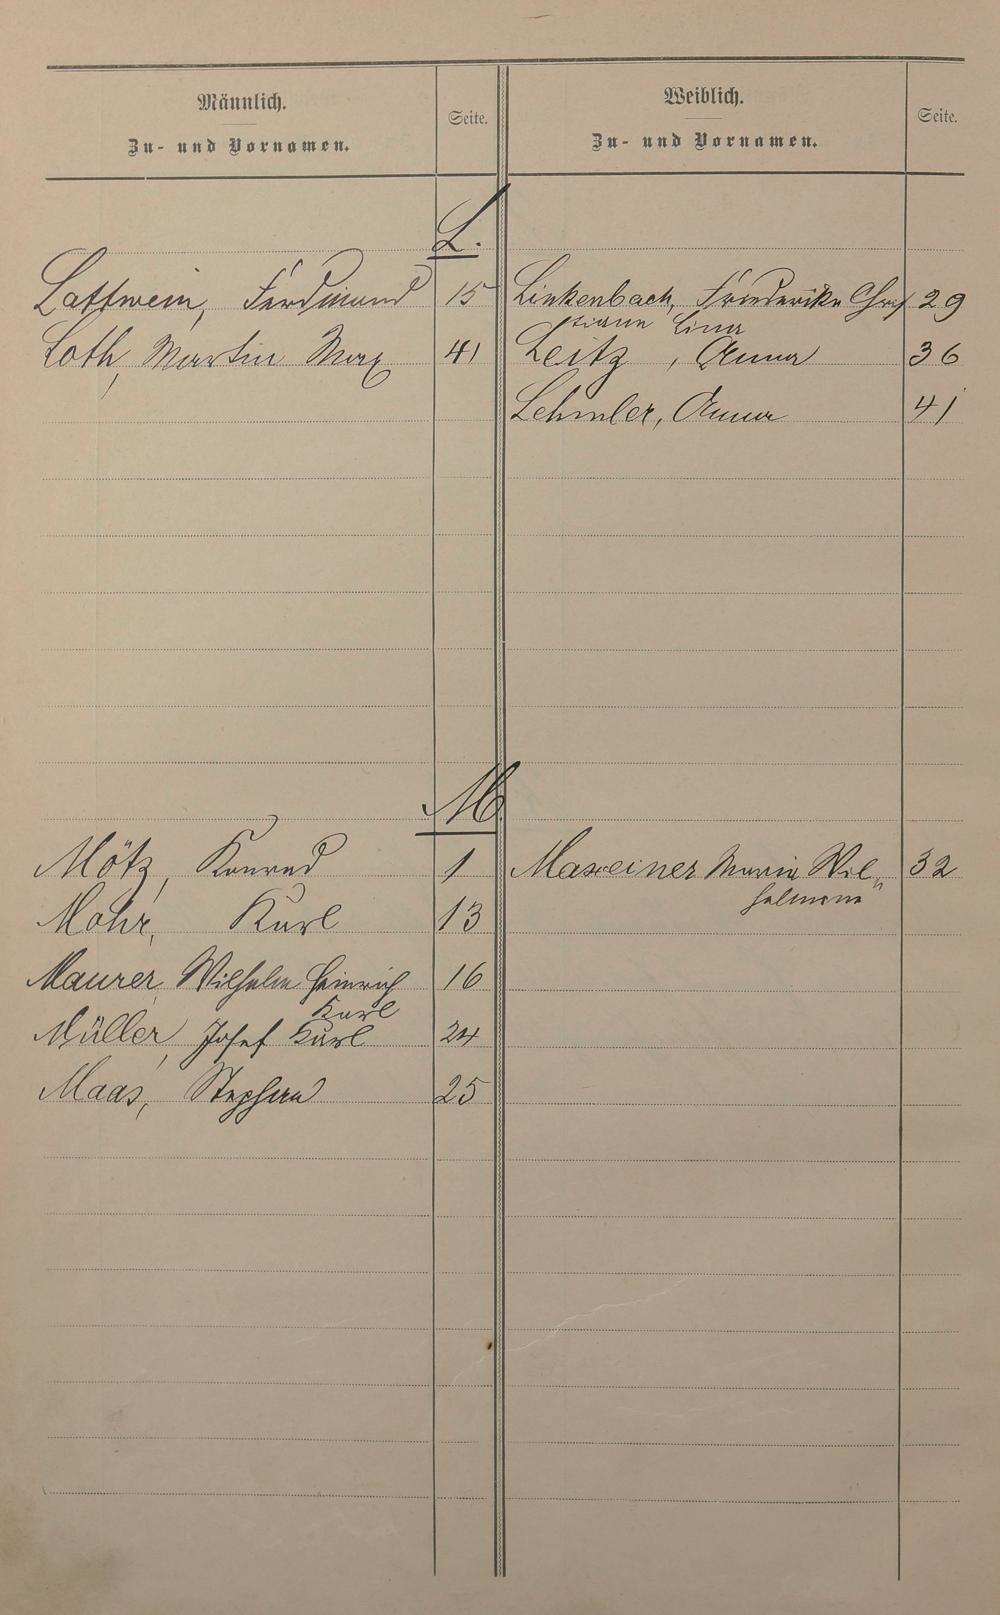 Männlich.
Zu- und Vornamen.
Seite.
Weiblich.
Zu- und Vornamen.
Seite.
L.
Lattwein, Ferdinand 15
Linkenbach, Friederike Chris 29
tiane Lina
Loth, Martin Max 41
Leitz, Anna 36
Lehmler, Anna 41
M.
Mötz, Konrad 1
Maxeiner Maria Wil„ 32
helmine
Mohr, Karl 13
Maurer, Wilhelm Heinrich 16
Karl
Müller, Josef Karl 24
Maas, Stephan 25